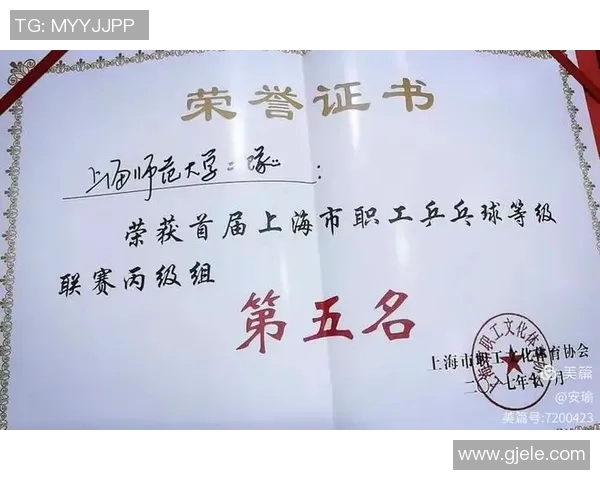 TG: MYYJJPP
荣誉证书
上海师范大学二队：
荣获首届上海市职工乒乓球等级
联赛丙级组
第五名
上海市职工文化体育协会
二〇一七年十一月
美篇
@安瑜
美篇号:7200423
www.gjele.com